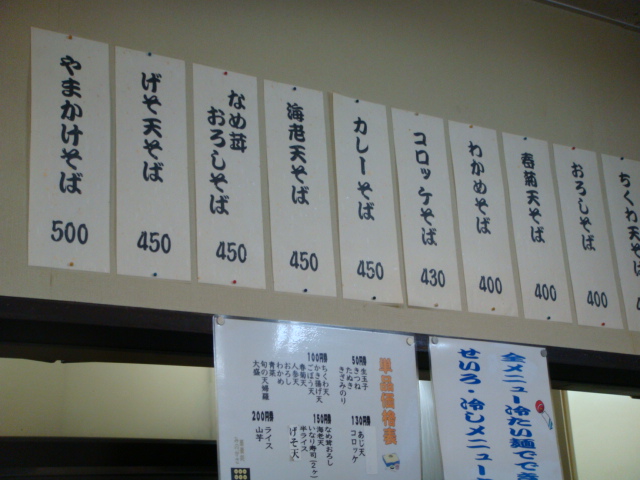 やまかけそば
500
げそ天そば
450
なめ茸
おろしそば
450
海老天そば
450
カレーそば
450
コロッケそば
430
わかめそば
400
春菊天そば
400
おろしそば
400
ちくわ天そば
単品価格表
50円券
生玉子
きつね
たぬき
きざみのり
100円券
ちくわ天
かき揚げ天
ごぼう天
春菊天
人参天
おろし
わかめ
青菜
旬の天婦羅
大盛
130円券
あじ天
コロッケ
150円券
なめ茸おろし
海老天
いなり寿司(2ヶ)
半ライス
げそ天
200円券
ライス
山芋
全メニュー冷たい麺でき
せいろ・冷しメニュー